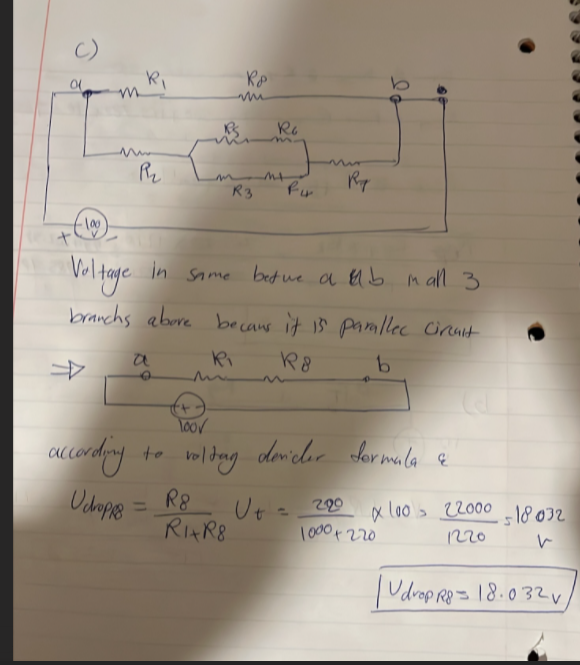 c)
a R1 R8 b
R5 R6
R2 R3 R4 R7
+ 100 V -
Voltage in same betwe a & b in all 3
branchs above becaus it is parallec circuit
⇒ a R1 R8 b
+ -
100V
according to voltag devider formula :
UdropR8 = R8 / R1+R8 Ut = 220 / 1000+220 x 100 = 22000 / 1220 = 18.032 v
UdropR8 = 18.032 v